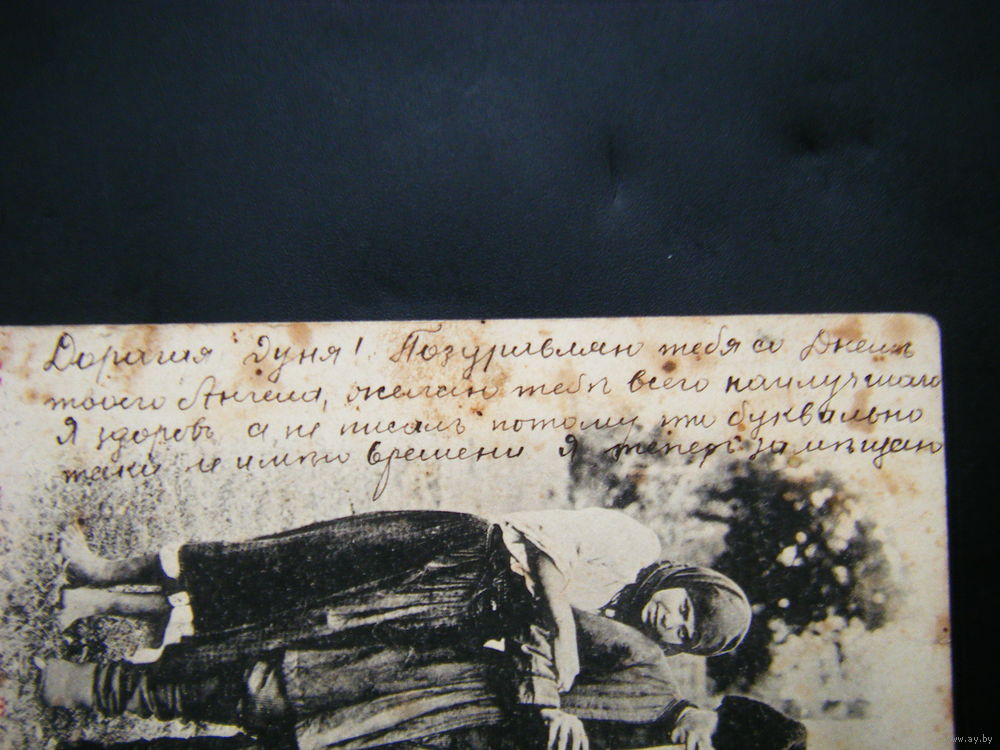 Дорогая Дуня! Поздравляю тебя со Днемъ
твоего Ангела, желаю тебѣ всего наилучшаго
Я здоровъ а не писалъ потому что буквально
таки не имѣю времени я теперь замѣщаю
ww.ay.by